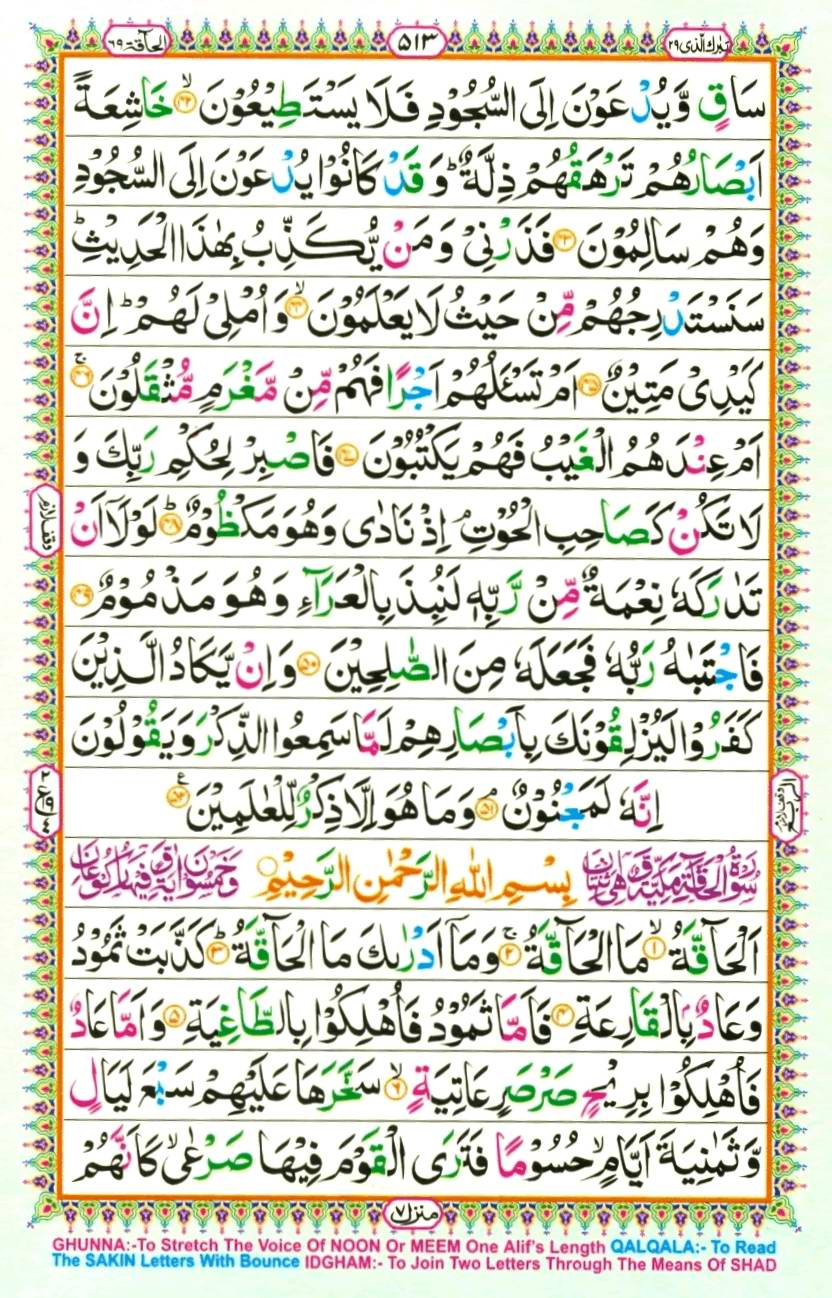 تبٰرك الذی ٢٩
٥١٣
الحآقة ٦٩
سَاقٍ وَّيُدْعَوْنَ اِلَى السُّجُوْدِ فَلَا يَسْتَطِيْعُوْنَ ﴿٤٢﴾ۙ خَاشِعَةً
اَبْصَارُهُمْ تَرْهَقُهُمْ ذِلَّةٌ ؕ وَقَدْ كَانُوْا يُدْعَوْنَ اِلَى السُّجُوْدِ
وَهُمْ سَالِمُوْنَ ﴿٤٣﴾ فَذَرْنِىْ وَمَنْ يُّكَذِّبُ بِهٰذَا الْحَدِيْثِ ؕ
سَنَسْتَدْرِجُهُمْ مِّنْ حَيْثُ لَا يَعْلَمُوْنَ ﴿٤٤﴾ۙ وَاُمْلِىْ لَهُمْ ؕ اِنَّ
كَيْدِىْ مَتِيْنٌ ﴿٤٥﴾ اَمْ تَسْـَٔلُهُمْ اَجْرًا فَهُمْ مِّنْ مَّغْرَمٍ مُّثْقَلُوْنَ ﴿٤٦﴾ۚ
اَمْ عِنْدَهُمُ الْغَيْبُ فَهُمْ يَكْتُبُوْنَ ﴿٤٧﴾ فَاصْبِرْ لِحُكْمِ رَبِّكَ وَ
لَا تَكُنْ كَصَاحِبِ الْحُوْتِ ۘ اِذْ نَادٰى وَهُوَ مَكْظُوْمٌ ﴿٤٨﴾ؕ لَوْلَاۤ اَنْ
وقف لازم
تَدٰرَكَهٗ نِعْمَةٌ مِّنْ رَّبِّهٖ لَنُبِذَ بِالْعَرَآءِ وَهُوَ مَذْمُوْمٌ ﴿٤٩﴾
فَاجْتَبٰىهُ رَبُّهٗ فَجَعَلَهٗ مِنَ الصّٰلِحِيْنَ ﴿٥٠﴾ وَاِنْ يَّكَادُ الَّذِيْنَ
كَفَرُوْا لَيُزْلِقُوْنَكَ بِاَبْصَارِهِمْ لَمَّا سَمِعُوا الذِّكْرَ وَيَقُوْلُوْنَ
اِنَّهٗ لَمَجْنُوْنٌ ﴿٥١﴾ۘ وَمَا هُوَ اِلَّا ذِكْرٌ لِّلْعٰلَمِيْنَ ﴿٥٢﴾ ع
سُوْرَةُ الْحَآقَّةِ مَكِّيَّةٌ وَّهِىَ اثْنَتَانِ بِسْمِ اللّٰهِ الرَّحْمٰنِ الرَّحِيْمِ وَخَمْسُوْنَ اٰيَةً وَّفِيْهَا رُكُوْعَانِ
اَلْحَآقَّةُ ﴿١﴾ۙ مَا الْحَآقَّةُ ﴿٢﴾ۚ وَمَاۤ اَدْرٰىكَ مَا الْحَآقَّةُ ﴿٣﴾ؕ كَذَّبَتْ ثَمُوْدُ
وَعَادٌۢ بِالْقَارِعَةِ ﴿٤﴾ فَاَمَّا ثَمُوْدُ فَاُهْلِكُوْا بِالطَّاغِيَةِ ﴿٥﴾ وَاَمَّا عَادٌ
فَاُهْلِكُوْا بِرِيْحٍ صَرْصَرٍ عَاتِيَةٍ ﴿٦﴾ۙ سَخَّرَهَا عَلَيْهِمْ سَبْعَ لَيَالٍ
وَّثَمٰنِيَةَ اَيَّامٍ ۙ حُسُوْمًا فَتَرَى الْقَوْمَ فِيْهَا صَرْعٰى ۙ كَاَنَّهُمْ
منزل ٧
GHUNNA:-To Stretch The Voice Of NOON Or MEEM One Alif's Length QALQALA:- To Read
The SAKIN Letters With Bounce IDGHAM:- To Join Two Letters Through The Means Of SHAD